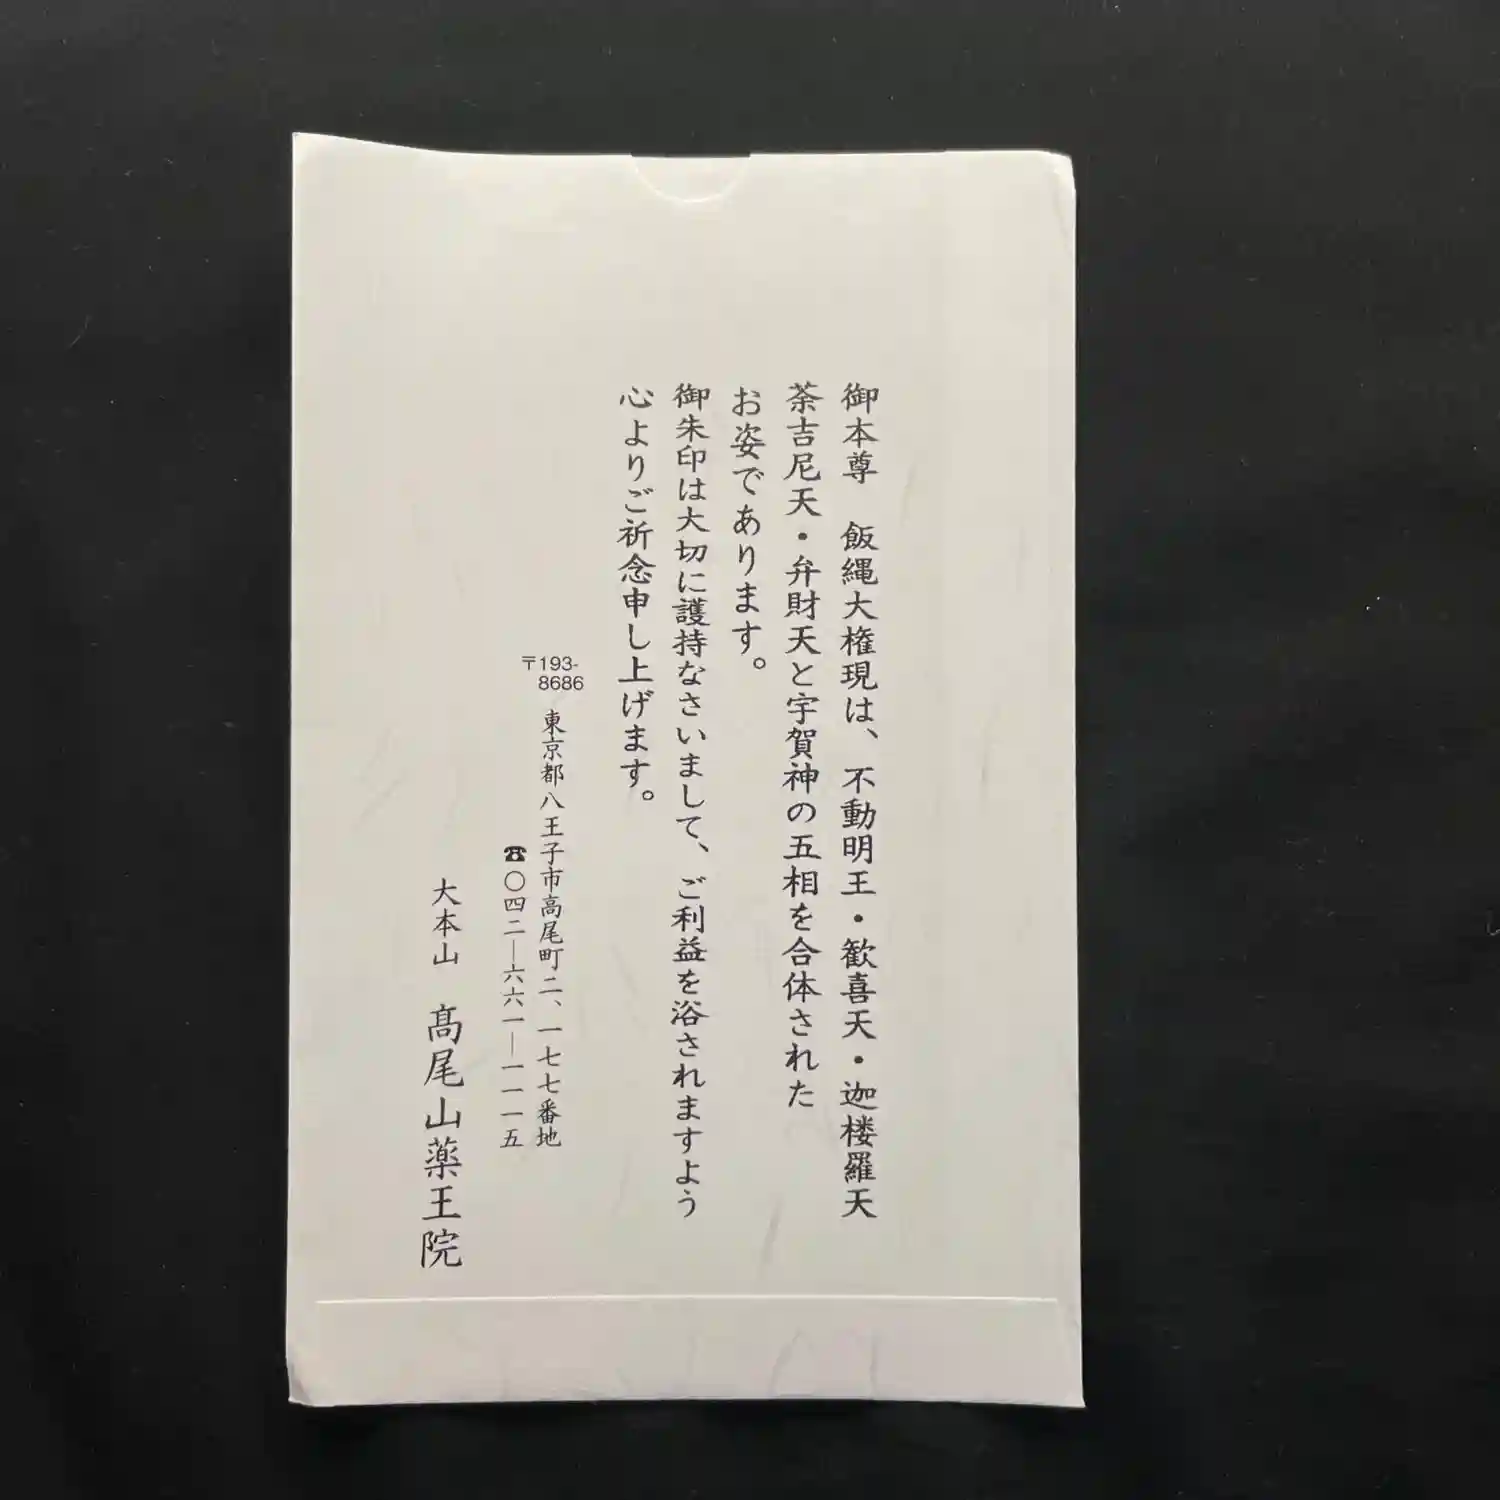 御本尊　飯縄大権現は、不動明王・歓喜天・迦楼羅天
荼吉尼天・弁財天と宇賀神の五相を合体された
お姿であります。
御朱印は大切に護持なさいまして、ご利益を浴されますよう
心よりご祈念申し上げます。
〒193-
8686
東京都八王子市高尾町二、一七七番地
☎〇四二―六六一―一一一五
大本山　髙尾山薬王院